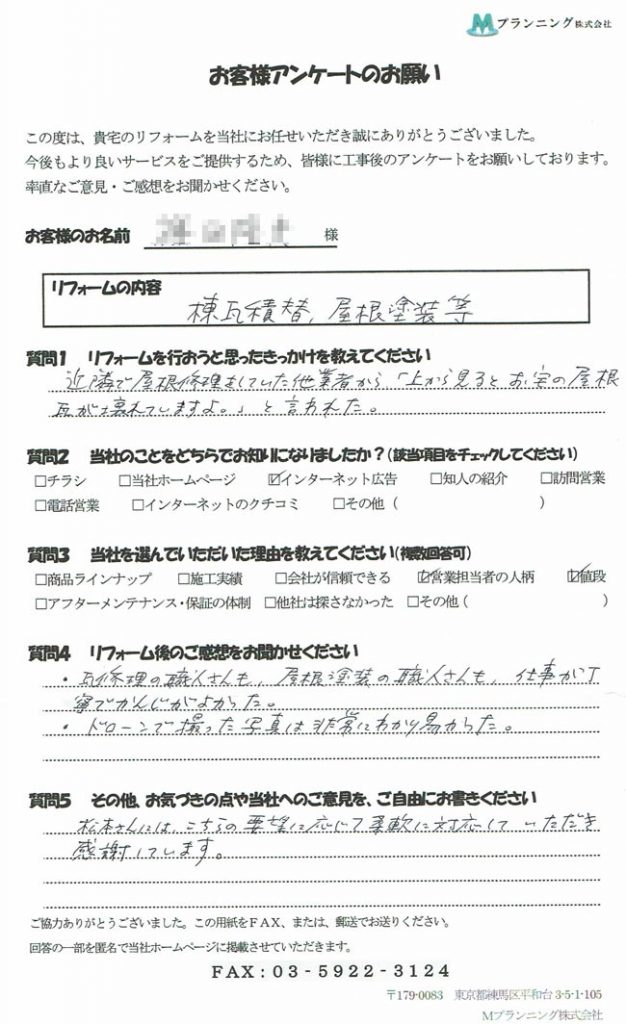 Mプランニング株式会社
お客様アンケートのお願い
この度は、貴宅のリフォームを当社にお任せいただき誠にありがとうございました。
今後もより良いサービスをご提供するため、皆様に工事後のアンケートをお願いしております。
率直なご意見・ご感想をお聞かせください。
お客様のお名前 様
リフォームの内容
棟瓦積替、屋根塗装等
質問1 リフォームを行おうと思ったきっかけを教えてください
近隣で屋根修理をしていた他業者から「上から見るとお宅の屋根
瓦が壊れてしますよ。」と言われた。
質問2 当社のことをどちらでお知りになりましたか？(該当項目をチェックしてください)
□チラシ □当社ホームページ ☑インターネット広告 □知人の紹介 □訪問営業
□電話営業 □インターネットのクチコミ □その他（ ）
質問3 当社を選んでいただいた理由を教えてください(複数回答可)
□商品ラインナップ □施工実績 □会社が信頼できる ☑営業担当者の人柄 ☑値段
□アフターメンテナンス・保証の体制 □他社は探さなかった □その他（ ）
質問4 リフォーム後のご感想をお聞かせください
・瓦修理の職人さんも、屋根塗装の職人さんも、仕事が丁
寧でかんじがよかった。
・ドローンで撮った写真は非常にわかり易かった。
質問5 その他、お気づきの点や当社へのご意見を、ご自由にお書きください
松本さんには、こちらの要望に応じて柔軟に対応して いただき
感謝してします。
ご協力ありがとうございました。この用紙をＦＡＸ、または、郵送でお送りください。
回答の一部を匿名で当社ホームページに掲載させていただきます。
FAX：03-5922-3124
〒179-0083 東京都練馬区平和台3-5-1-105
Mプランニング株式会社